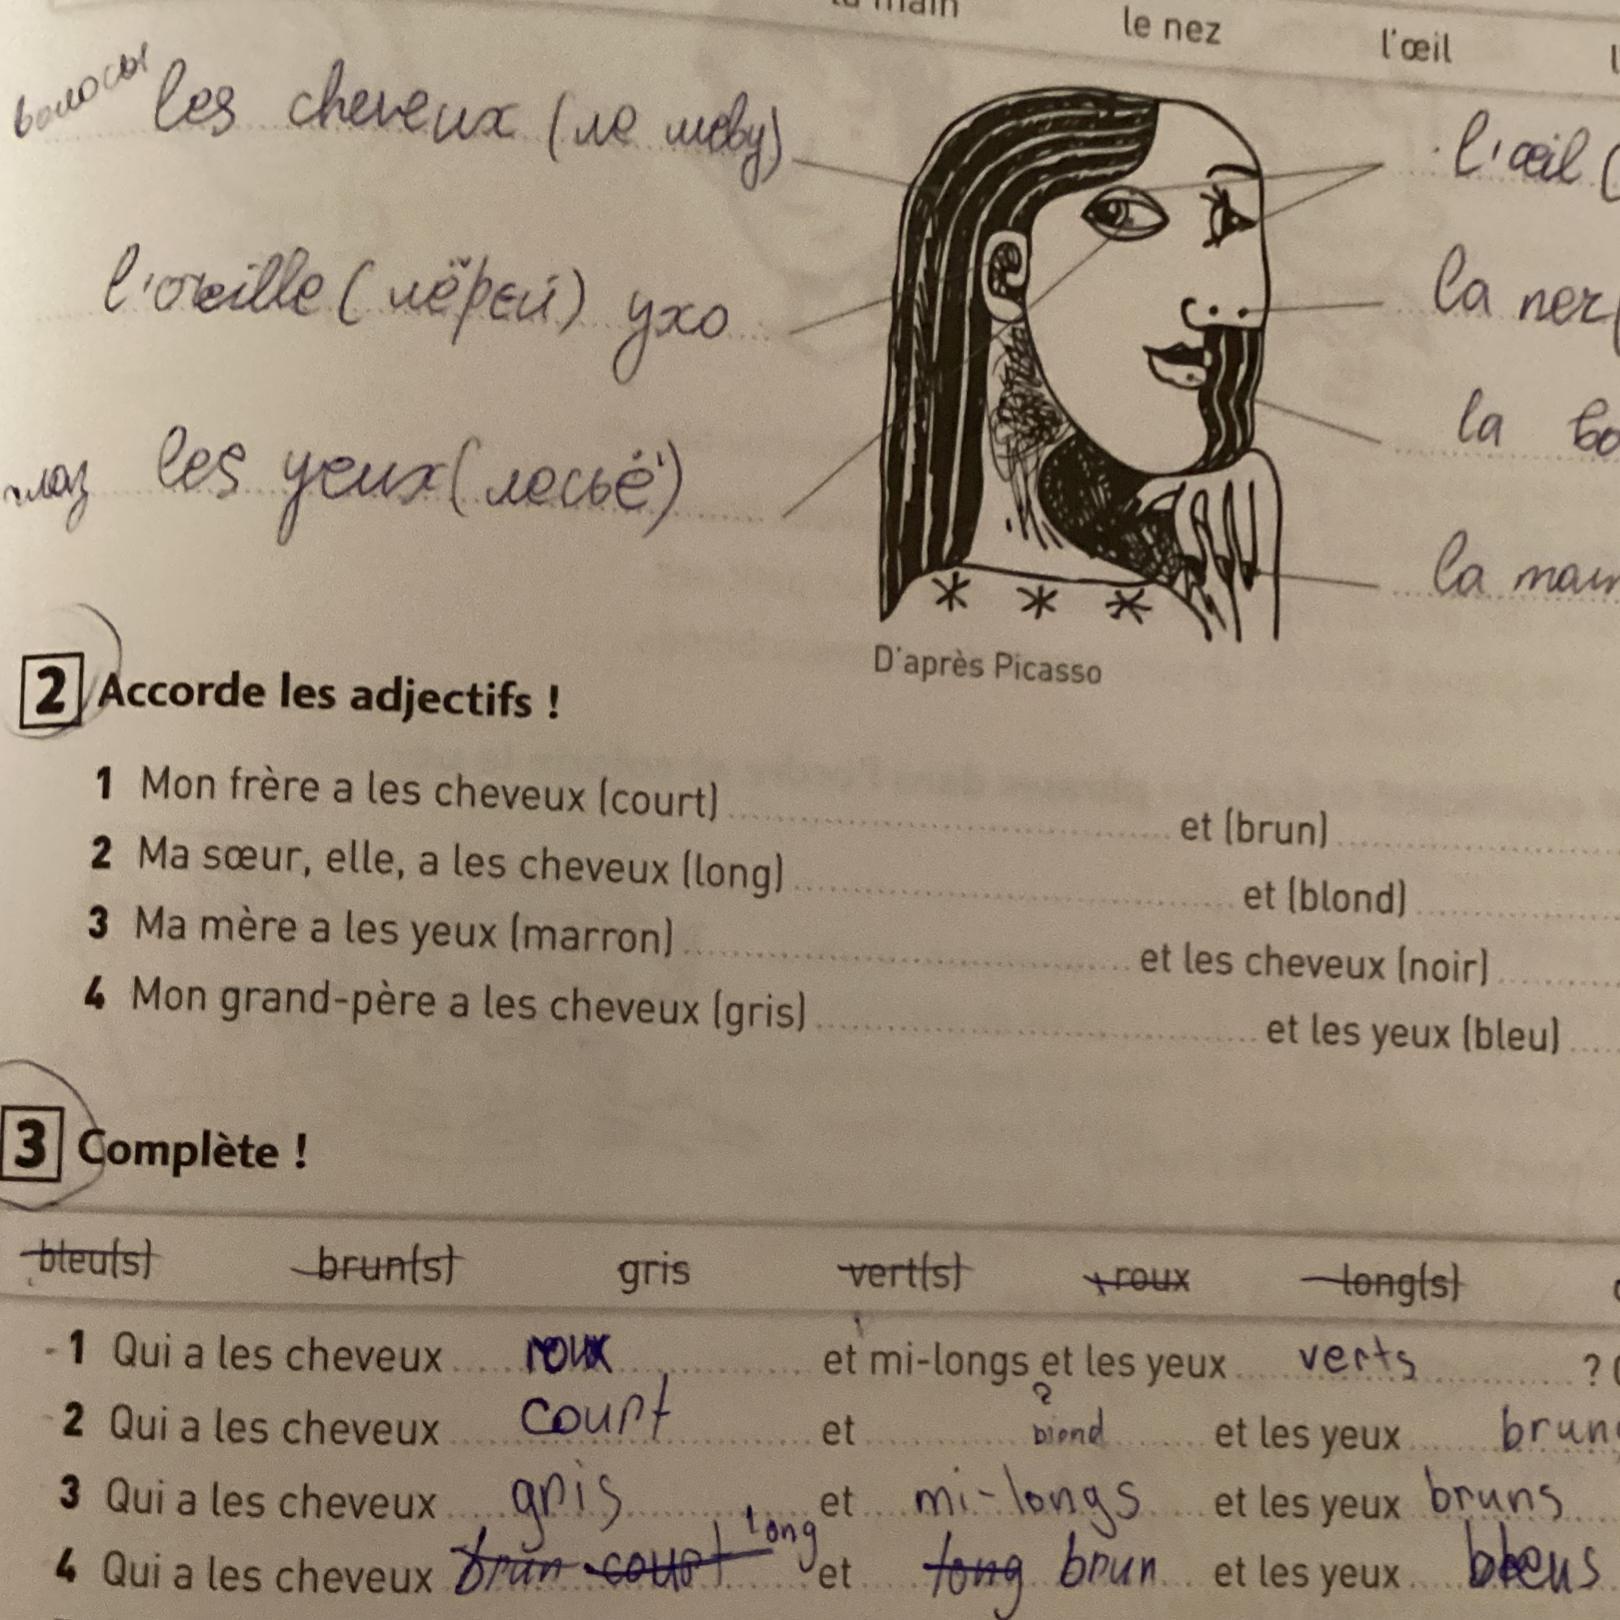 main le nez l'œil
волосы les cheveux (ле шеву) l'œil (
l'oreille (лёрей) ухо la nez
les yeux (лесьё) la
la
D'après Picasso
2 Accorde les adjectifs !
1 Mon frère a les cheveux (court) et (brun)
2 Ma sœur, elle, a les cheveux (long) et (blond)
3 Ma mère a les yeux (marron) et les cheveux (noir)
4 Mon grand-père a les cheveux (gris) et les yeux (bleu)
3 Complète !
bleu(s) brun(s) gris vert(s) roux long(s)
1 Qui a les cheveux roux et mi-longs et les yeux verts ? (
2 Qui a les cheveux court et blond ? et les yeux brun
3 Qui a les cheveux gris et mi-longs et les yeux bruns
4 Qui a les cheveux brun court long et long brun et les yeux bleus